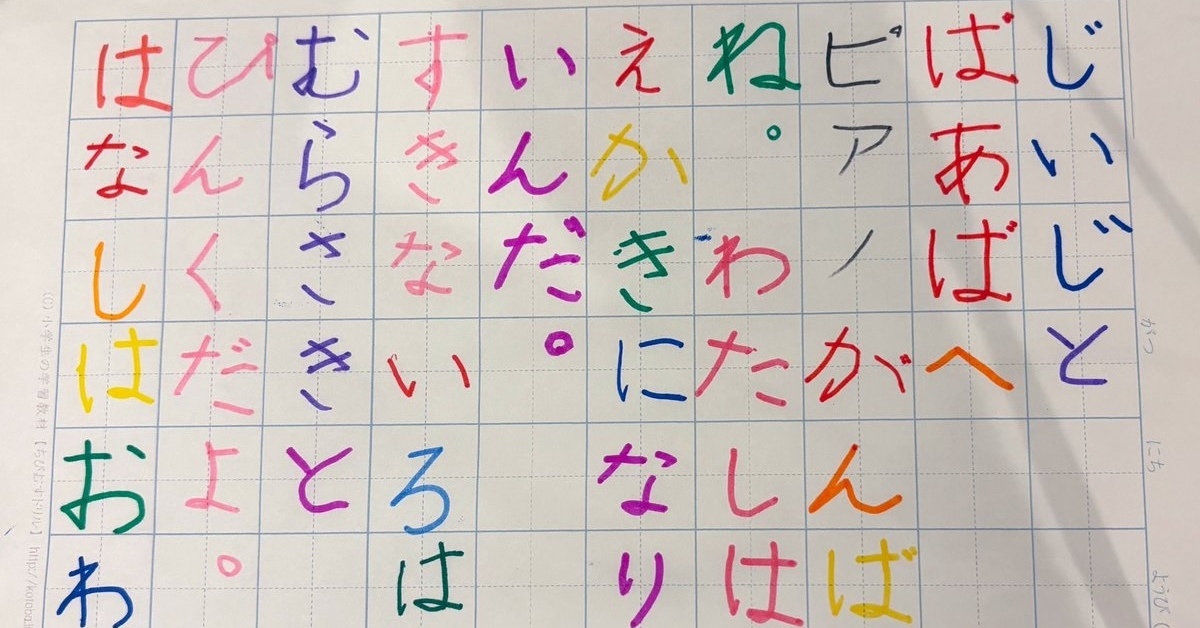 がつ にち ようび (
じいじと
ばあばへ
ピアノがんば
ね。わたしは
えかきになり
いんだ。
すきないろは
むらさきと
ぴんくだよ。
はなしはおわ
(C) 小学生の学習教材【ちびむすドリル】 http://kotoba